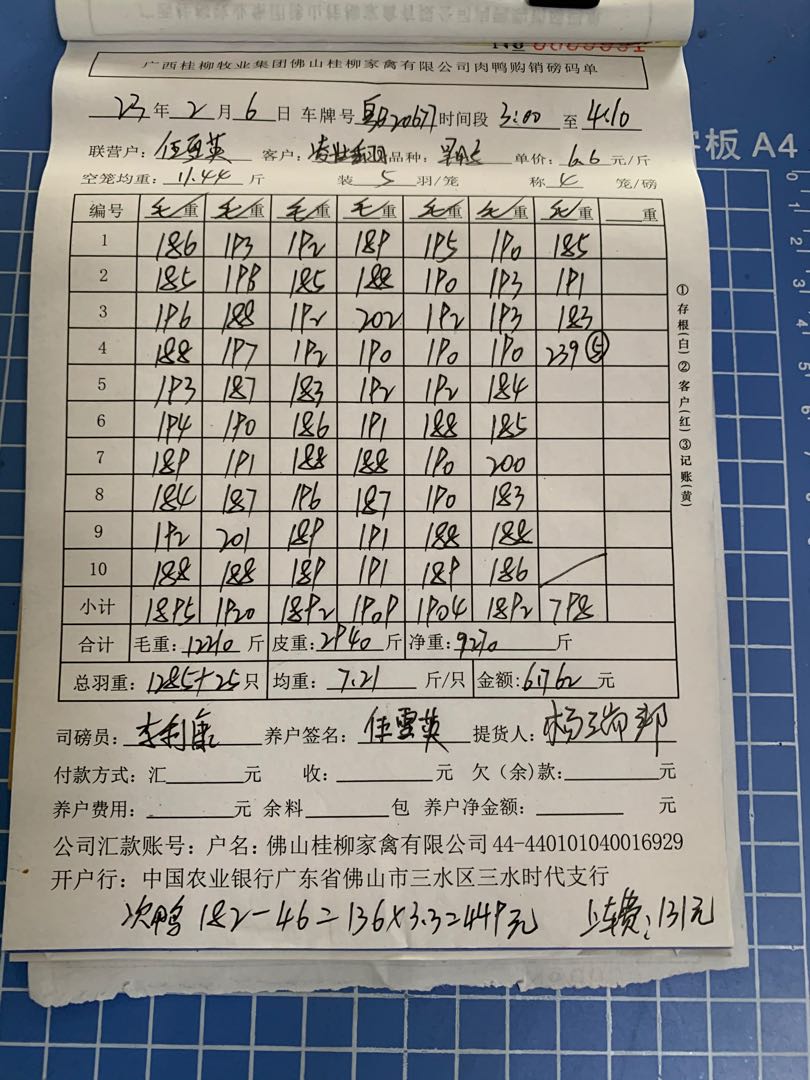 No 0003931
广西桂柳牧业集团佛山桂柳家禽有限公司肉鸭购销磅码单
23年2月6日 车牌号 20677 时间段 3:00 至 4:10
联营户: 客户: 品种: 单价: 6.6 元/斤
空笼均重: 11.44 斤 装 5 羽/笼 称 4 笼/磅
编号 毛/重 毛/重 毛/重 毛/重 毛/重 毛/重 毛/重 重
1 186 193 192 189 195 190 185
2 185 198 185 188 190 193 191
3 196 188 192 202 192 193 183
4 188 197 192 190 190 190 239 ⑤
5 193 187 183 192 192 184
6 194 190 186 191 188 185
7 189 191 188 188 190 200
8 184 187 196 187 190 183
9 192 201 189 191 188 188
10 188 188 189 191 189 186
小计 1895 1920 1892 1909 1904 1892 798
合计 毛重: 12210 斤 皮重: 2940 斤 净重: 9270 斤
总羽重: 1285+25 只 均重: 7.21 斤/只 金额: 61762 元
司磅员: 李利康 养户签名: 提货人:
付款方式: 汇 元 收: 元 欠(余)款: 元
养户费用: 元 余料 包 养户净金额: 元
公司汇款账号: 户名: 佛山桂柳家禽有限公司 44-440101040016929
开户行: 中国农业银行广东省佛山市三水区三水时代支行
次鸭 182-46=136×3.3=449元 上车费: 131元
①存根(白)②客户(红)③记账(黄)
板 A4
0
1
2
3
4
5